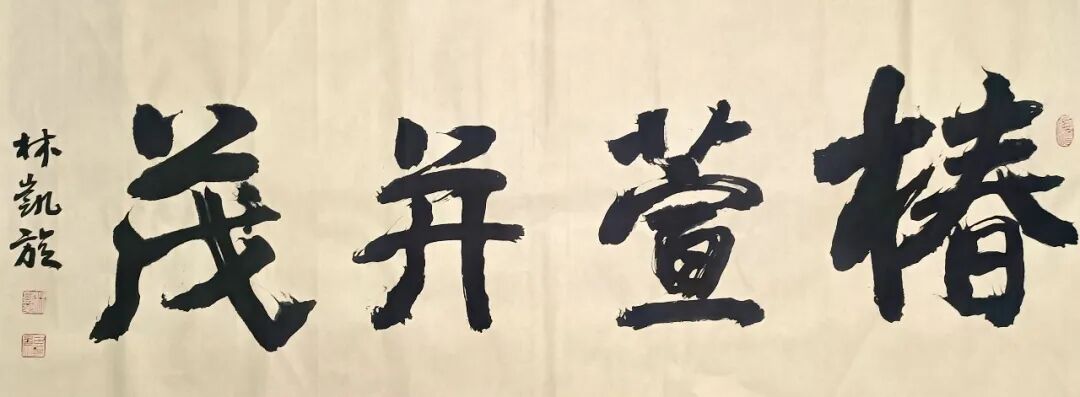 椿萱并茂
林凯旋